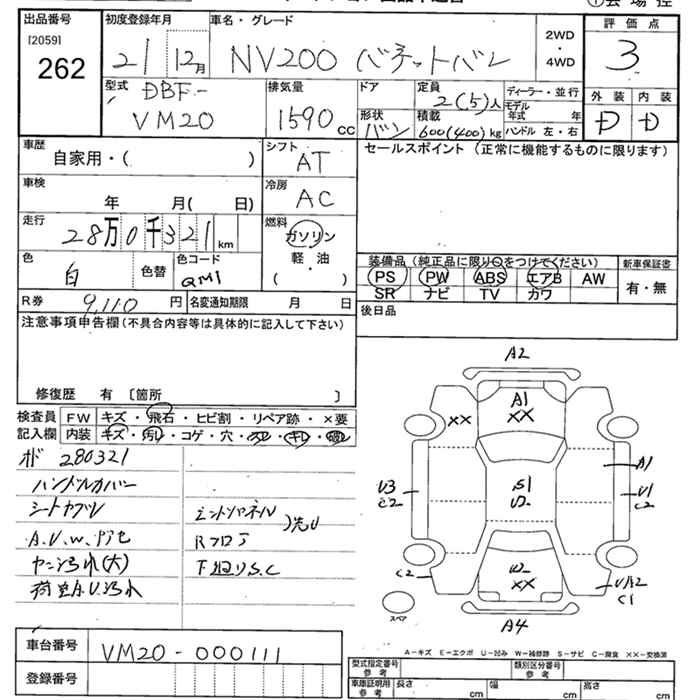 出品番号
[2059]
262
初度登録年月
21 12月
車名・グレード
NV200 バネットバン
2WD
・
4WD
評価点
3
型式
DBF-
VM20
排気量
1590 cc
ドア
形状
バン
定員
2(5)人
積載
600(400)kg
ディーラー・並行
モデル
年式 年
ハンドル 左・右
外装 内装
D D
車歴
自家用・( )
シフト
AT
セールスポイント (正常に機能するものに限ります)
車検
年 月( 日)
冷房
AC
走行
28万0千321 km
燃料
ガソリン
軽・油
( ・ )
色
白
色替
色コード
QM1
装備品(純正品に限り○をつけてください)
新車保証書
PS PW ABS エアB AW
有・無
SR ナビ TV カワ
R券 9,110 円
名変通知期限 月 日
後日品
注意事項申告欄(不具合内容等は具体的に記入して下さい)
修復歴 有 〔箇所 〕
検査員
記入欄
FW キズ・飛石・ヒビ割・リペア跡・×要
内装 キズ・汚レ・コゲ・穴・スレ・キレ・破レ
280321
ハンドルカバー
A.U.W.
ヤニ汚れ(大)
荷室A.U.汚れ
下廻りS.C
A2
A1
XX
XX
A1
U3
C2
S1
U2
U1
C2
C2
U2
XX
UA2
C1
A4
スペア
A-キズ E-エクボ U-凹み W-補修跡 S-サビ C-腐食 ××-交換済
車台番号 VM20-000111
登録番号
型式指定番号
参考
類別区分番号
参考
車庫証明用
参考
長さ cm
幅 cm
高さ cm